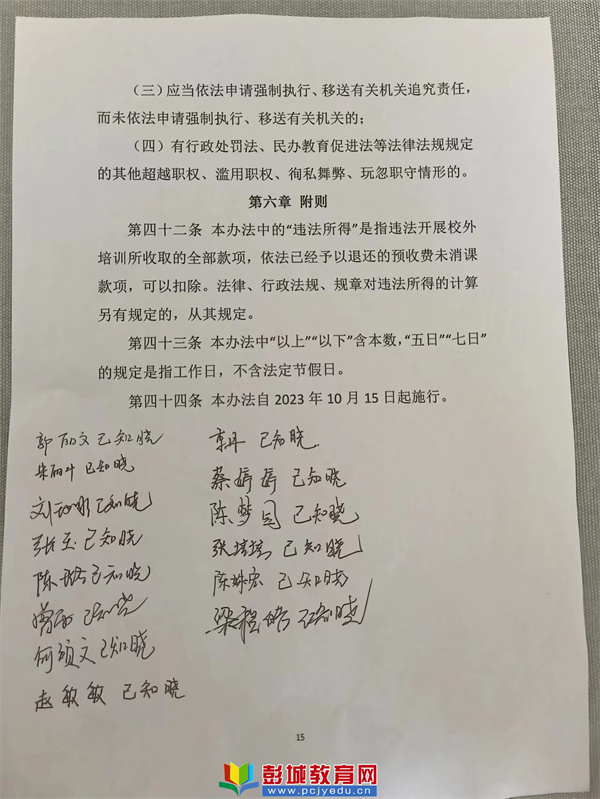 （三）应当依法申请强制执行、移送有关机关追究责任，
而未依法申请强制执行、移送有关机关的；
（四）有行政处罚法、民办教育促进法等法律法规规定
的其他超越职权、滥用职权、徇私舞弊、玩忽职守情形的。
第六章 附则
第四十二条 本办法中的“违法所得”是指违法开展校外
培训所收取的全部款项，依法已经予以退还的预收费未消课
款项，可以扣除。法律、行政法规、规章对违法所得的计算
另有规定的，从其规定。
第四十三条 本办法中“以上”“以下”含本数，“五日”“七日”
的规定是指工作日，不含法定节假日。
第四十四条 本办法自 2023 年 10 月 15 日起施行。
郭丽文 已知晓
朱丽叶 已知晓
已知晓
张玉 已知晓
陈 已知晓
已知晓
何颂文 已知晓
赵敏敏 已知晓
已知晓
蔡婷婷 已知晓
陈梦园 已知晓
张培培 已知晓
陈 已知晓
梁程皓 已知晓
15
彭城教育网
www.pcjyedu.cn